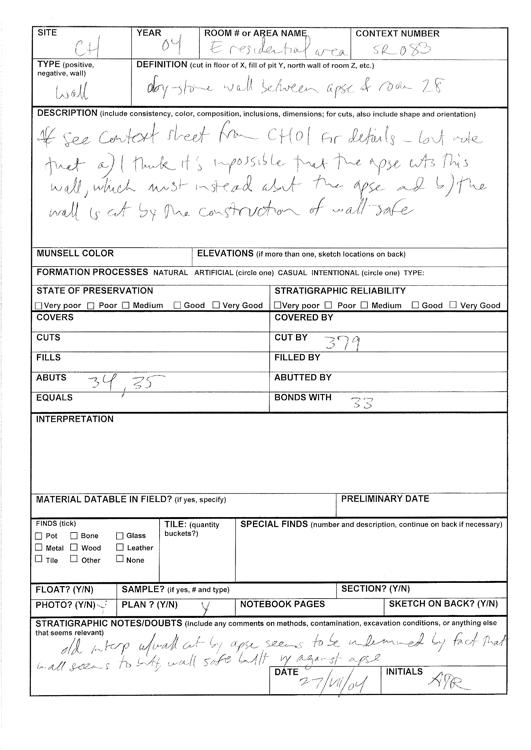 SITE CH YEAR 04 ROOM # or AREA NAME E residential area CONTEXT NUMBER SR083
TYPE (positive, negative, wall) wall DEFINITION (cut in floor of X, fill of pit Y, north wall of room Z, etc.) dry-stone wall between apse & room 28
DESCRIPTION (include consistency, color, composition, inclusions, dimensions; for cuts, also include shape and orientation)
* See Context sheet from CH01 for details - but note
that a) I think it's impossible that the apse cuts this
wall, which must instead abut the apse and b) the
wall is cut by the construction of wall safe
MUNSELL COLOR ELEVATIONS (if more than one, sketch locations on back)
FORMATION PROCESSES NATURAL ARTIFICIAL (circle one) CASUAL INTENTIONAL (circle one) TYPE:
STATE OF PRESERVATION STRATIGRAPHIC RELIABILITY
Very poor Poor Medium Good Very Good Very poor Poor Medium Good Very Good
COVERS COVERED BY
CUTS CUT BY 379
FILLS FILLED BY
ABUTS 34, 35 ABUTTED BY
EQUALS BONDS WITH 33
INTERPRETATION
MATERIAL DATABLE IN FIELD? (if yes, specify) PRELIMINARY DATE
FINDS (tick) TILE: (quantity buckets?) SPECIAL FINDS (number and description, continue on back if necessary)
Pot Bone Glass
Metal Wood Leather
Tile Other None
FLOAT? (Y/N) SAMPLE? (if yes, # and type) SECTION? (Y/N)
PHOTO? (Y/N) PLAN ? (Y/N) Y NOTEBOOK PAGES SKETCH ON BACK? (Y/N)
STRATIGRAPHIC NOTES/DOUBTS (include any comments on methods, contamination, excavation conditions, or anything else
that seems relevant)
old interp of wall cut by apse seems to be undermined by fact that
wall seems to wall safe built up against apse
DATE 27/VII/04 INITIALS